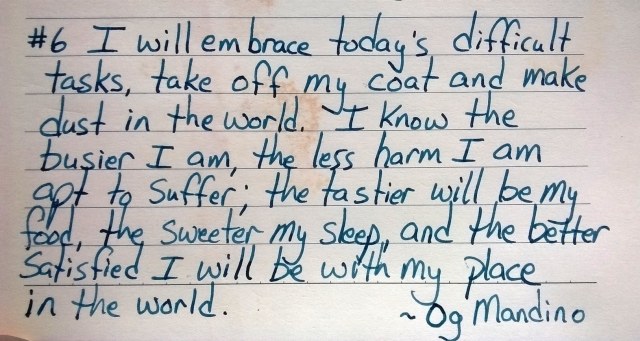 #6 I will embrace today's difficult
tasks, take off my coat and make
dust in the world. I know the
busier I am, the less harm I am
apt to suffer; the tastier will be my
food, the sweeter my sleep, and the better
satisfied I will be with my place
in the world. ~Og Mandino